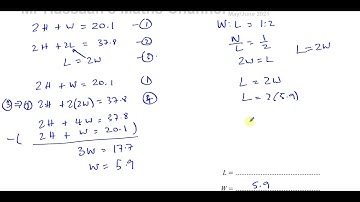 2H + W = 20.1 —①
2H + 2L = 37.8 —②
L = 2W —③
2H + W = 20.1 ①
③⇒② 2H + 2(2W) = 37.8 ④
2H + 4W = 37.8
-( 2H + W = 20.1 )
3W = 17.7
W = 5.9
W : L = 1:2
W/L = 1/2
L = 2W
2W = L
L = 2W
L = 2(5.9)
L =
W = 5.9